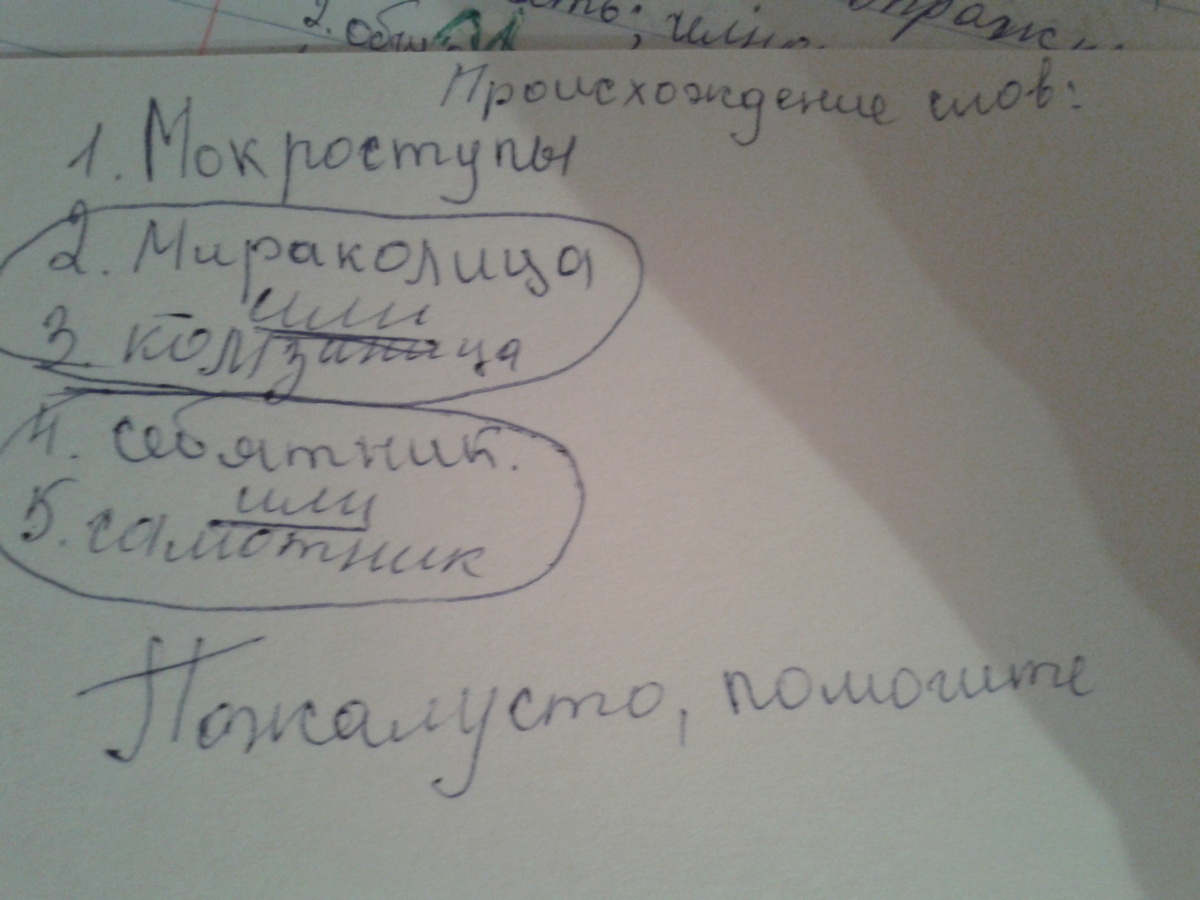 2.
Происхождение слов:
1. Мокроступы
2. Мираколица
или
3. колозаница
4. себятник.
или
5. самотник
Пожалусто, помогите